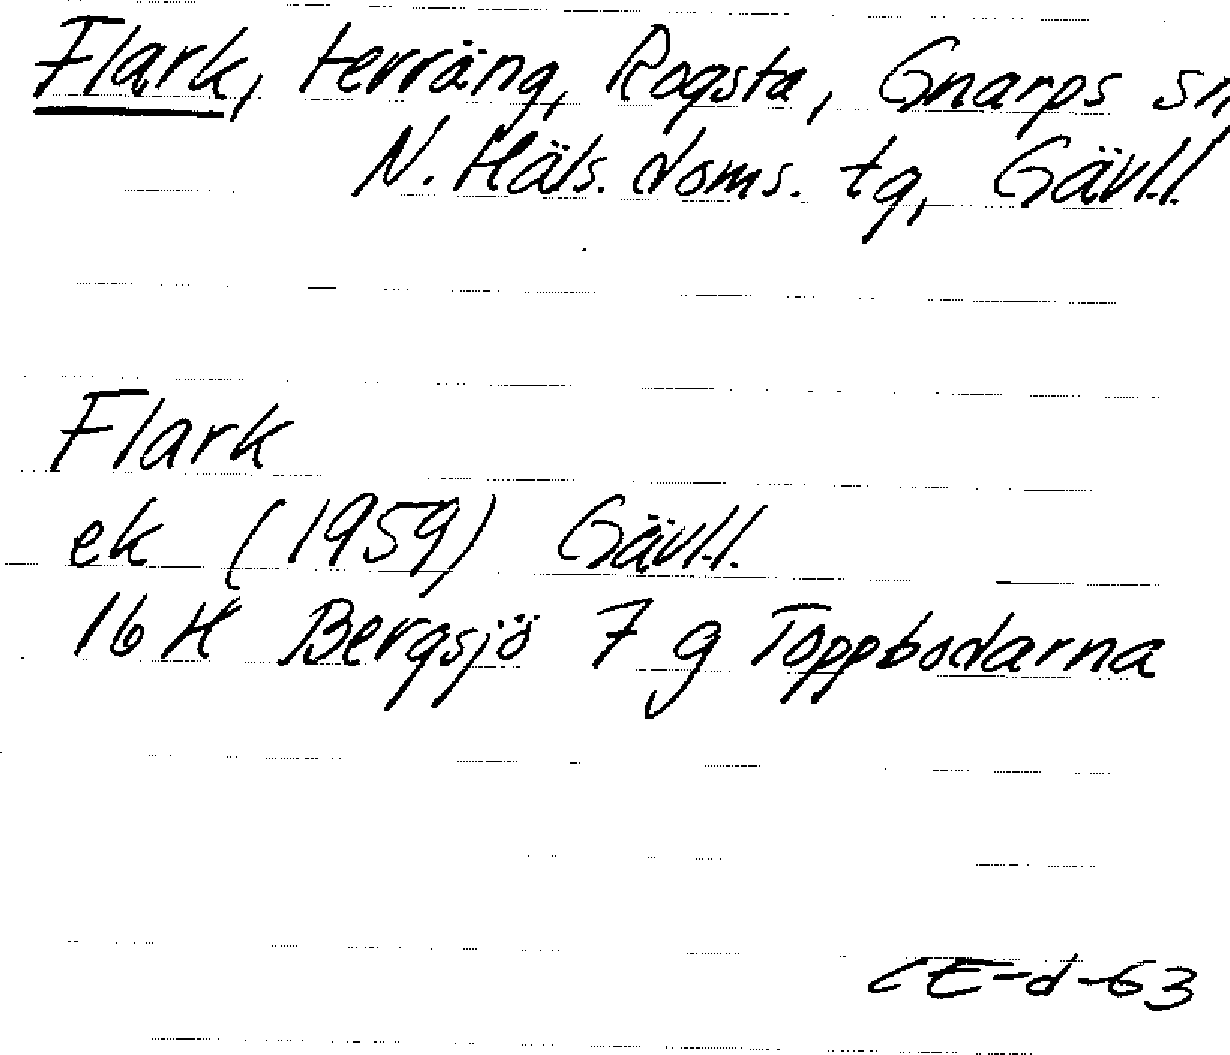 Flark, terräng, Rogsta, Gnarps sn
N. Häls. doms. tg, Gävl.l.
Flark
ek (1959) Gävl.l.
16 H Bergsjö 7 g Toppbodarna
CE-d-63